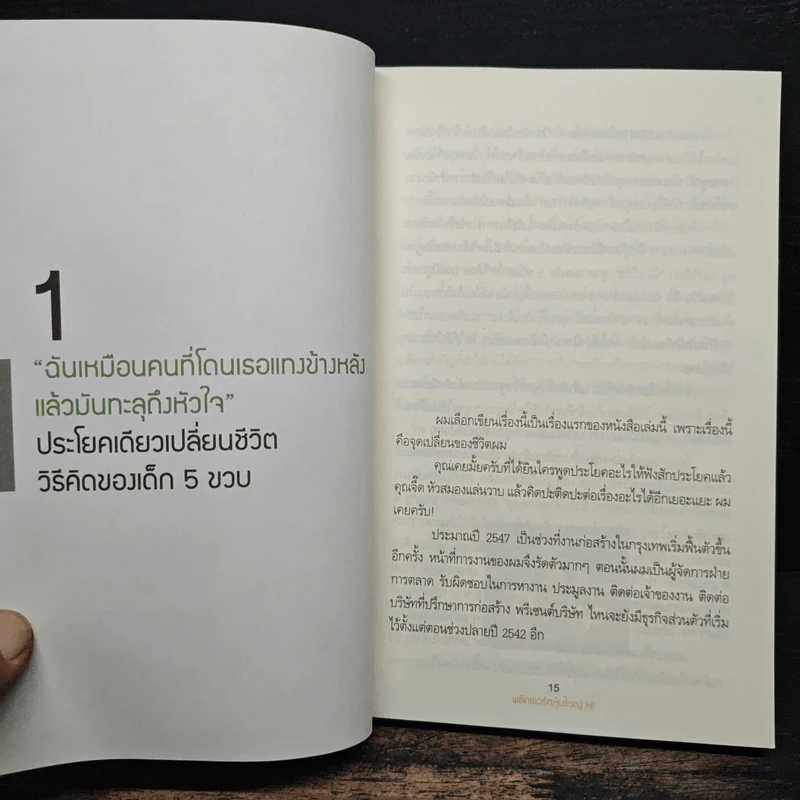 1
“ฉันเหมือนคนที่โดนเธอแทงข้างหลัง
แล้วมันทะลุถึงหัวใจ”
ประโยคเดียวเปลี่ยนชีวิต
วิธีคิดของเด็ก 5 ขวบ
ผมเลือกเขียนเรื่องนี้เป็นเรื่องแรกของหนังสือเล่มนี้ เพราะเรื่องนี้
คือจุดเปลี่ยนของชีวิตผม
คุณเคยมั้ยครับที่ได้ยินใครพูดประโยคอะไรให้ฟังสักประโยคแล้ว
คุณจี๊ด หัวสมองแล่นวาบ แล้วคิดปะติดปะต่อเรื่องอะไรได้อีกเยอะแยะ ผม
เคยครับ!
ประมาณปี 2547 เป็นช่วงที่งานก่อสร้างในกรุงเทพเริ่มฟื้นตัวขึ้น
อีกครั้ง หน้าที่การงานของผมจึงรัดตัวมากๆ ตอนนั้นผมเป็นผู้จัดการฝ่าย
การตลาด รับผิดชอบในการหางาน ประมูลงาน ติดต่อเจ้าของงาน ติดต่อ
บริษัทที่ปรึกษาการก่อสร้าง พรีเซนต์บริษัท ไหนจะยังมีธุรกิจส่วนตัวที่เริ่ม
ไว้ตั้งแต่ตอนช่วงปลายปี 2542 อีก
15
พลิกพอร์ตหุ้นใหญ่